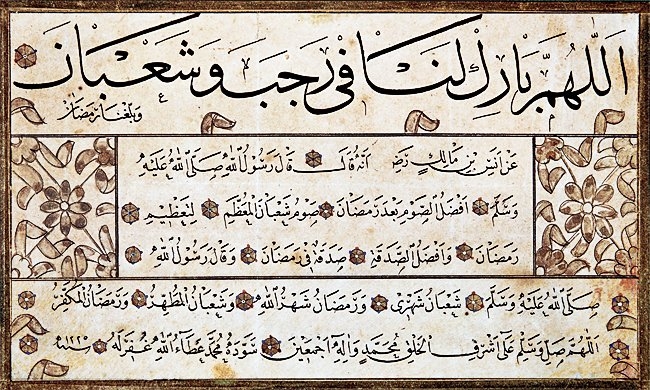 اللهم بارك لنا فى رجب وشعبان
وبلغنا رمضان
عن انس بن مالك رضـ انه قال قال رسول الله صلى الله عليه
وسلم افضل الصوم بعد رمضان صوم شعبان المعظم لتعظيم
رمضان وافضل الصدقة صدقة فى رمضان وقال رسول الله
صلى الله عليه وسلم شعبان شهرى ورمضان شهر الله وشعبان المطهر ورمضان المكفر
اللهم صل وسلم على اشرف الخلق محمد واله اجمعين سوده محمد عطاء الله غفر له